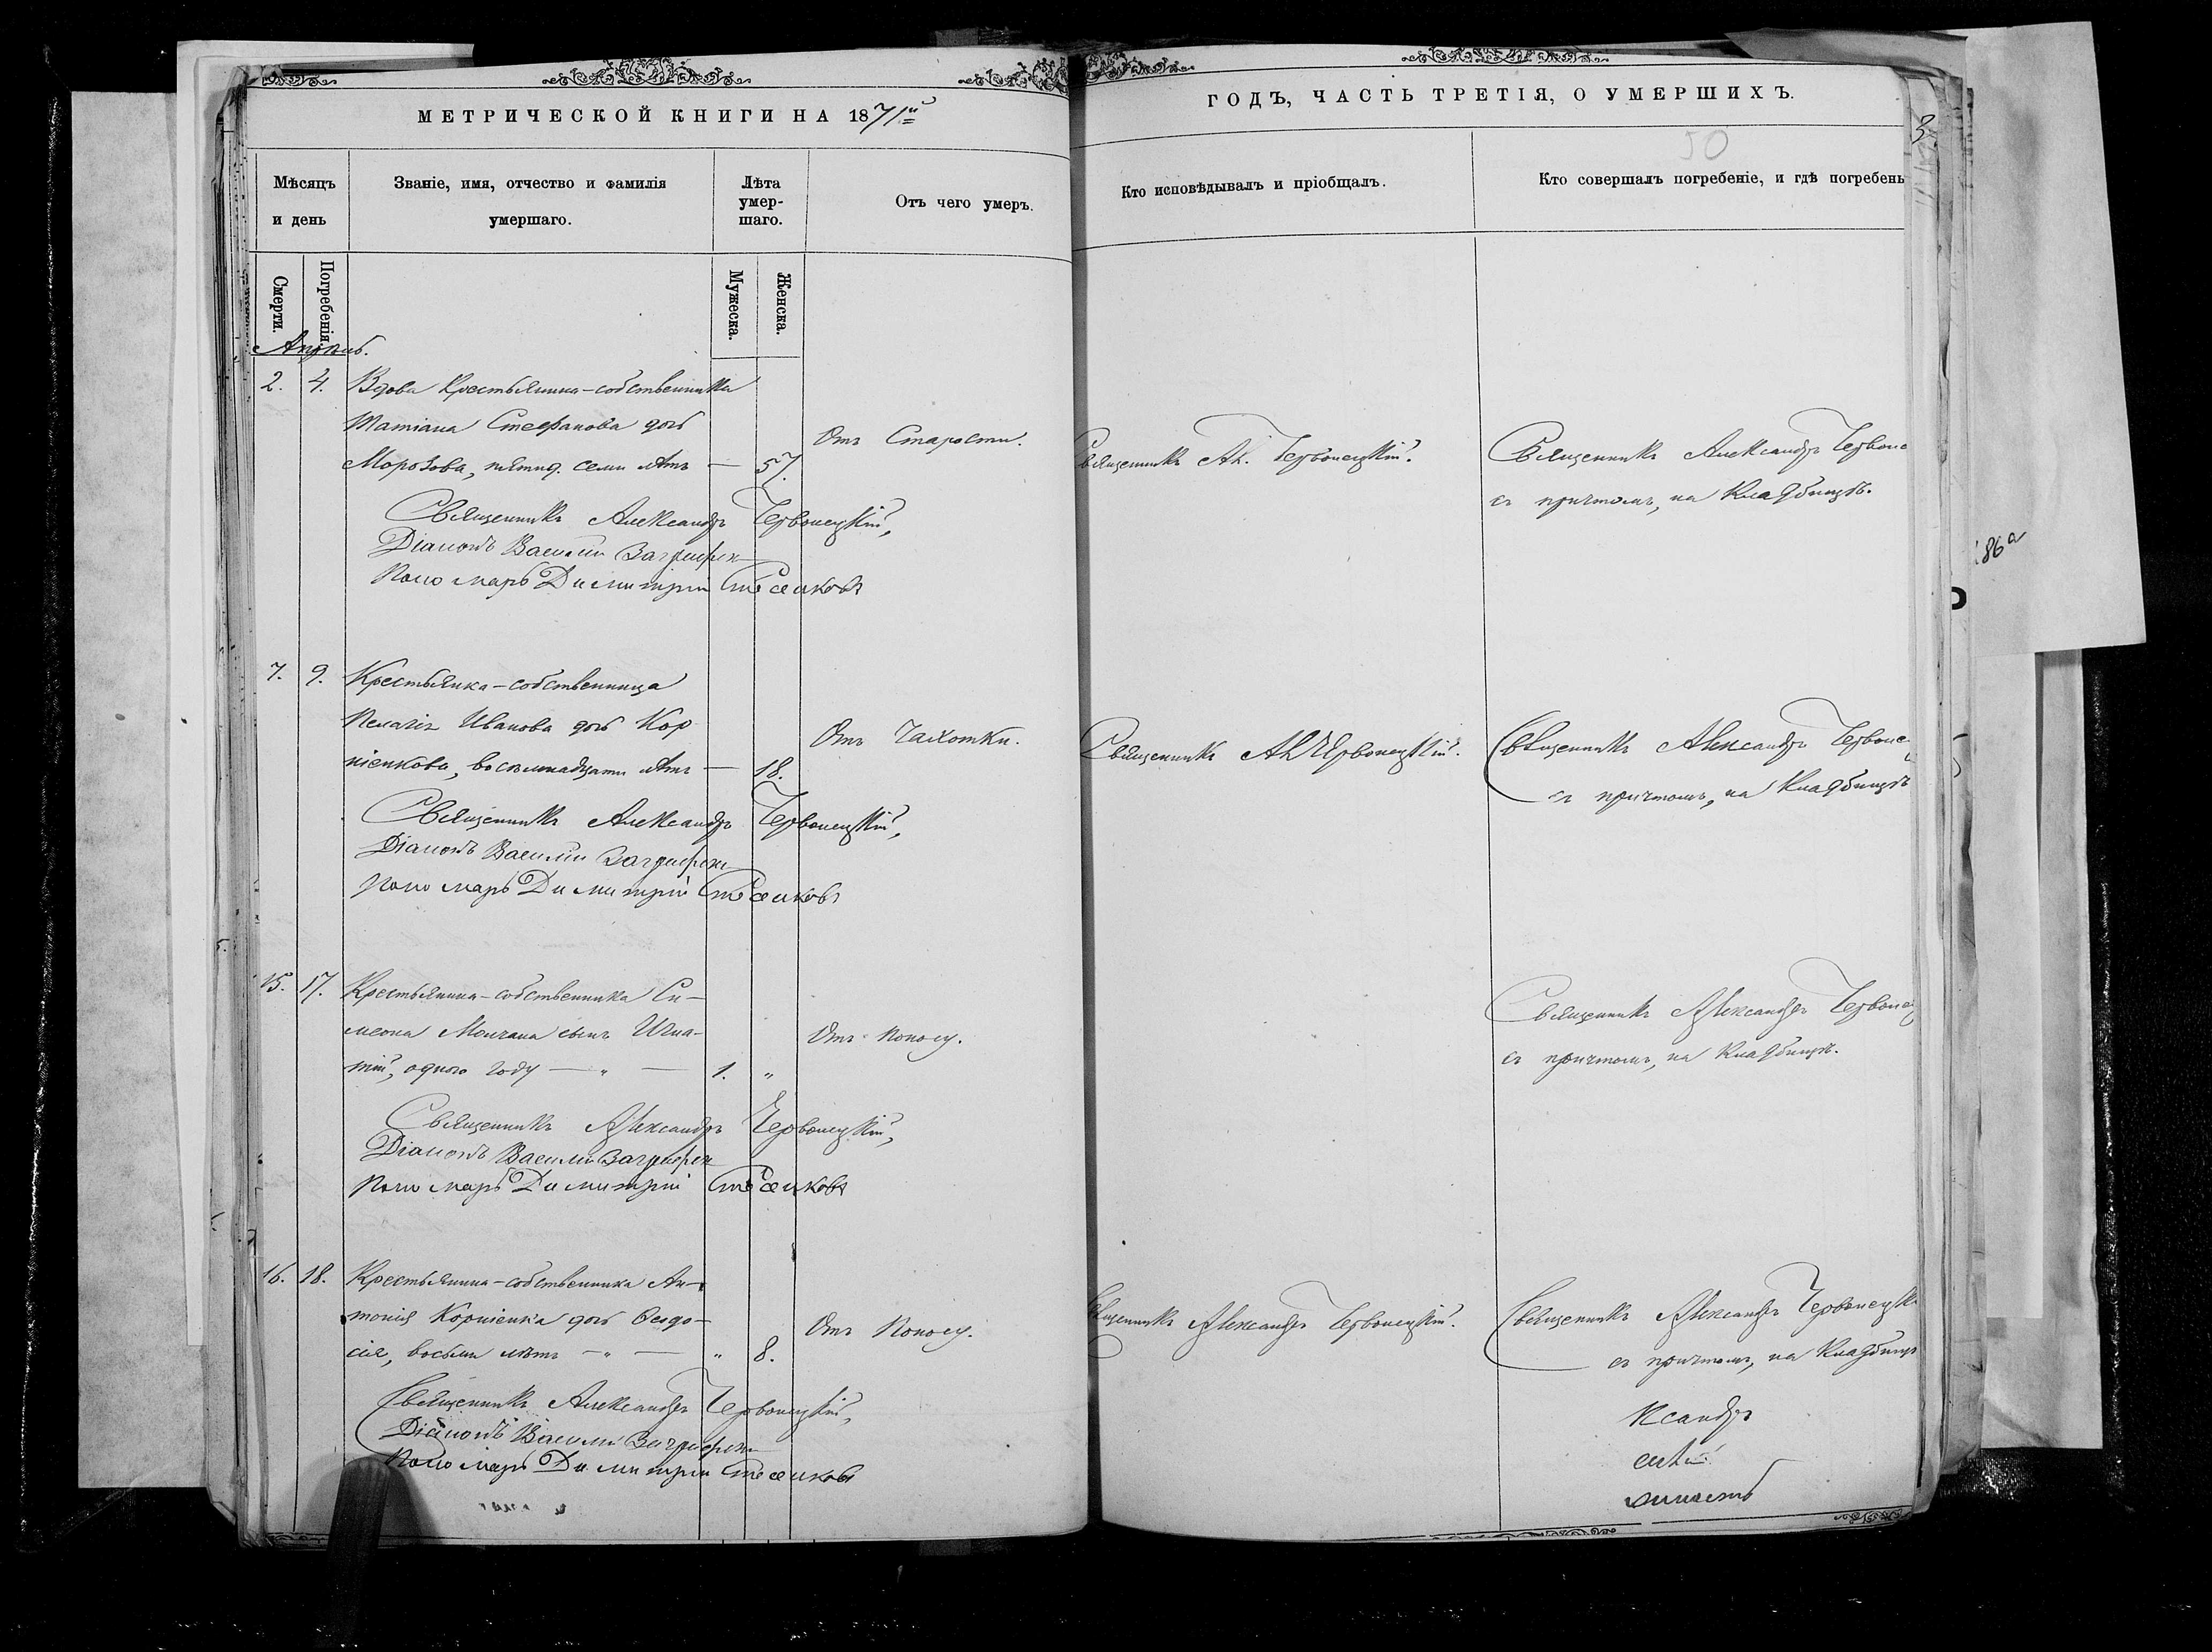 МЕТРИЧЕСКОЙ КНИГИ НА 1871й
ГОДЪ, ЧАСТЬ ТРЕТІЯ, О УМЕРШИХЪ.
50
3
Мѣсяцъ и день
Званіе, имя, отчество и фамилія умершаго.
Лѣта умер-шаго.
Отъ чего умеръ.
Кто исповѣдывалъ и пріобщалъ.
Кто совершалъ погребеніе, и гдѣ погребены
Смерти.
Погребенія.
Мужеска.
Женска.
Апрѣль.
2. 4. Вдова Крестьянина-собственника
Татіана Стефанова дочь
Морозова, пятид. семи лѣтъ — 57.
Отъ Старости.
Священникъ Ал. Червонецкій.
Священникъ Александръ Червоне
съ причтомъ, на Кладбищѣ.
Священникъ Александръ Червонецкій,
Діаконъ Василій
Пономарь Димитрій
7. 9. Крестьянка-собственница
Пелагія Иванова дочь Кор-
ніенкова, восемнадцати лѣтъ — 18.
Отъ Чахотки.
Священникъ Ал Червонецкій.
Священникъ Александръ Червоне
съ причтомъ, на Кладбищѣ
Священникъ Александръ Червонецкій,
Діаконъ Василій
Пономарь Димитрій
15. 17. Крестьянина-собственника Си-
меона Молчана сынъ Игна-
тій, одного году — " — 1. "
Отъ Поносу.
Священникъ Александръ Червонец
съ причтомъ, на Кладбищѣ.
Священникъ Александръ Червонецкій,
Діаконъ Василій
Пономарь Димитрій
16. 18. Крестьянина-собственника Ан-
тонія Корніенка дочь Ѳеодо-
сія, восьми лѣтъ — " — " 8.
Отъ Поносу.
Священникъ Александръ Червонецкій.
Священникъ Александръ Червонецк
съ причтомъ, на Кладбищ
Священникъ Александръ Червонецкій,
Діаконъ Василій
Пономарь Димитрій
ксандръ
86а